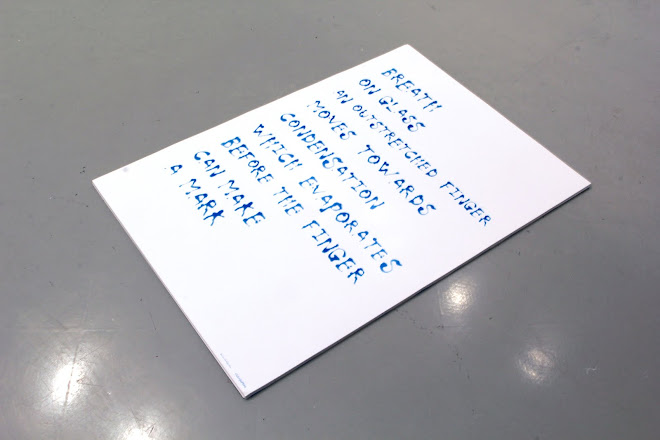 BREATH
ON GLASS
AN OUTSTRETCHED FINGER
MOVES TOWARDS
CONDENSATION
WHICH EVAPORATES
BEFORE THE FINGER
CAN MAKE
A MARK